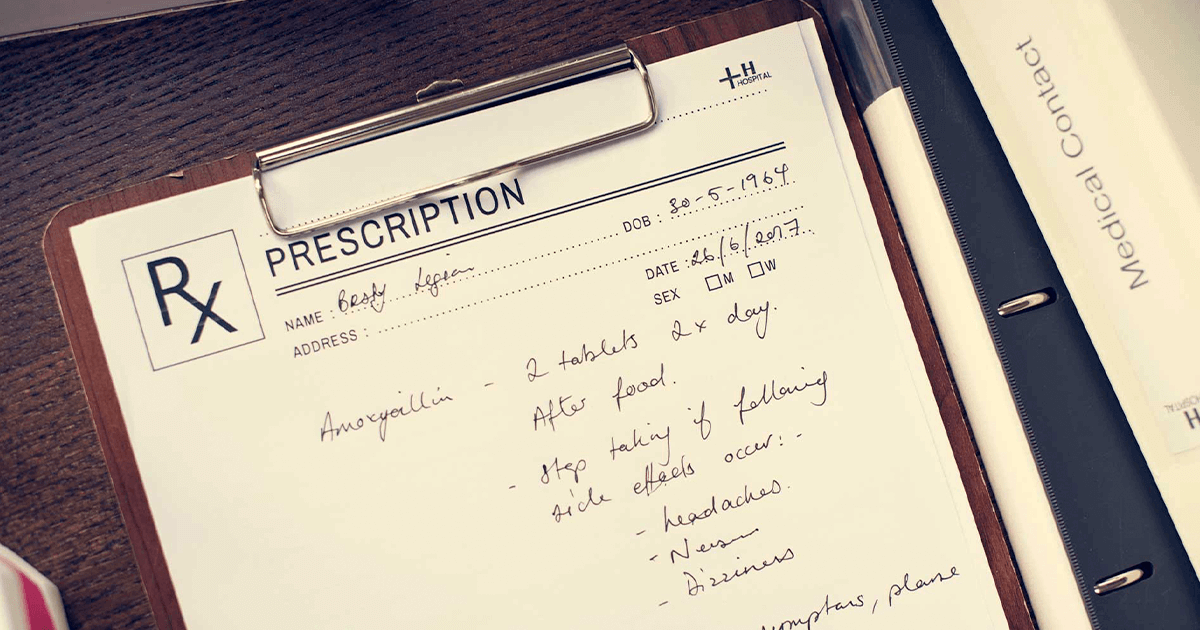 H
HOSPITAL
PRESCRIPTION
Rx
DOB : 30-5-1964
NAME :
DATE : 26/6/2017
ADDRESS :
SEX M W
Amoxycillin - 2 tablets 2x day.
After food.
- Stop taking if following
side effects occur: -
- headaches.
-
- Dizziness
please
Medical Contact
H
HOSPITAL